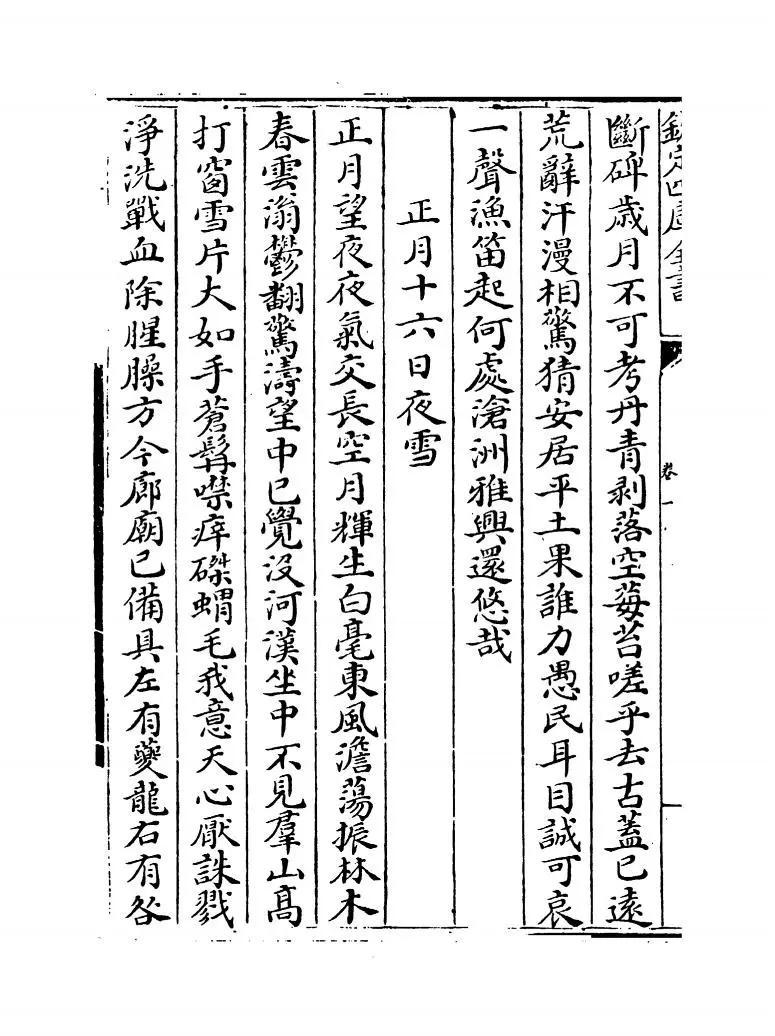 欽定四庫全書
卷一
斷碑歲月不可考丹青剥落空莓苔嗟乎去古蓋已遠
荒辭汗漫相驚猜安居平土果誰力愚民耳目誠可哀
一聲漁笛起何處滄洲雅興還悠哉
正月十六日夜雪
正月望夜夜氣交長空月輝生白毫東風澹蕩振林木
春雲滃鬱翻驚濤望中已覺没河漢坐中不見羣山髙
打窗雪片大如手蒼髯噤瘁磔蝟毛我意天心厭誅戮
淨洗戰血除腥臊方今廊廟已備具左有夔龍右有咎